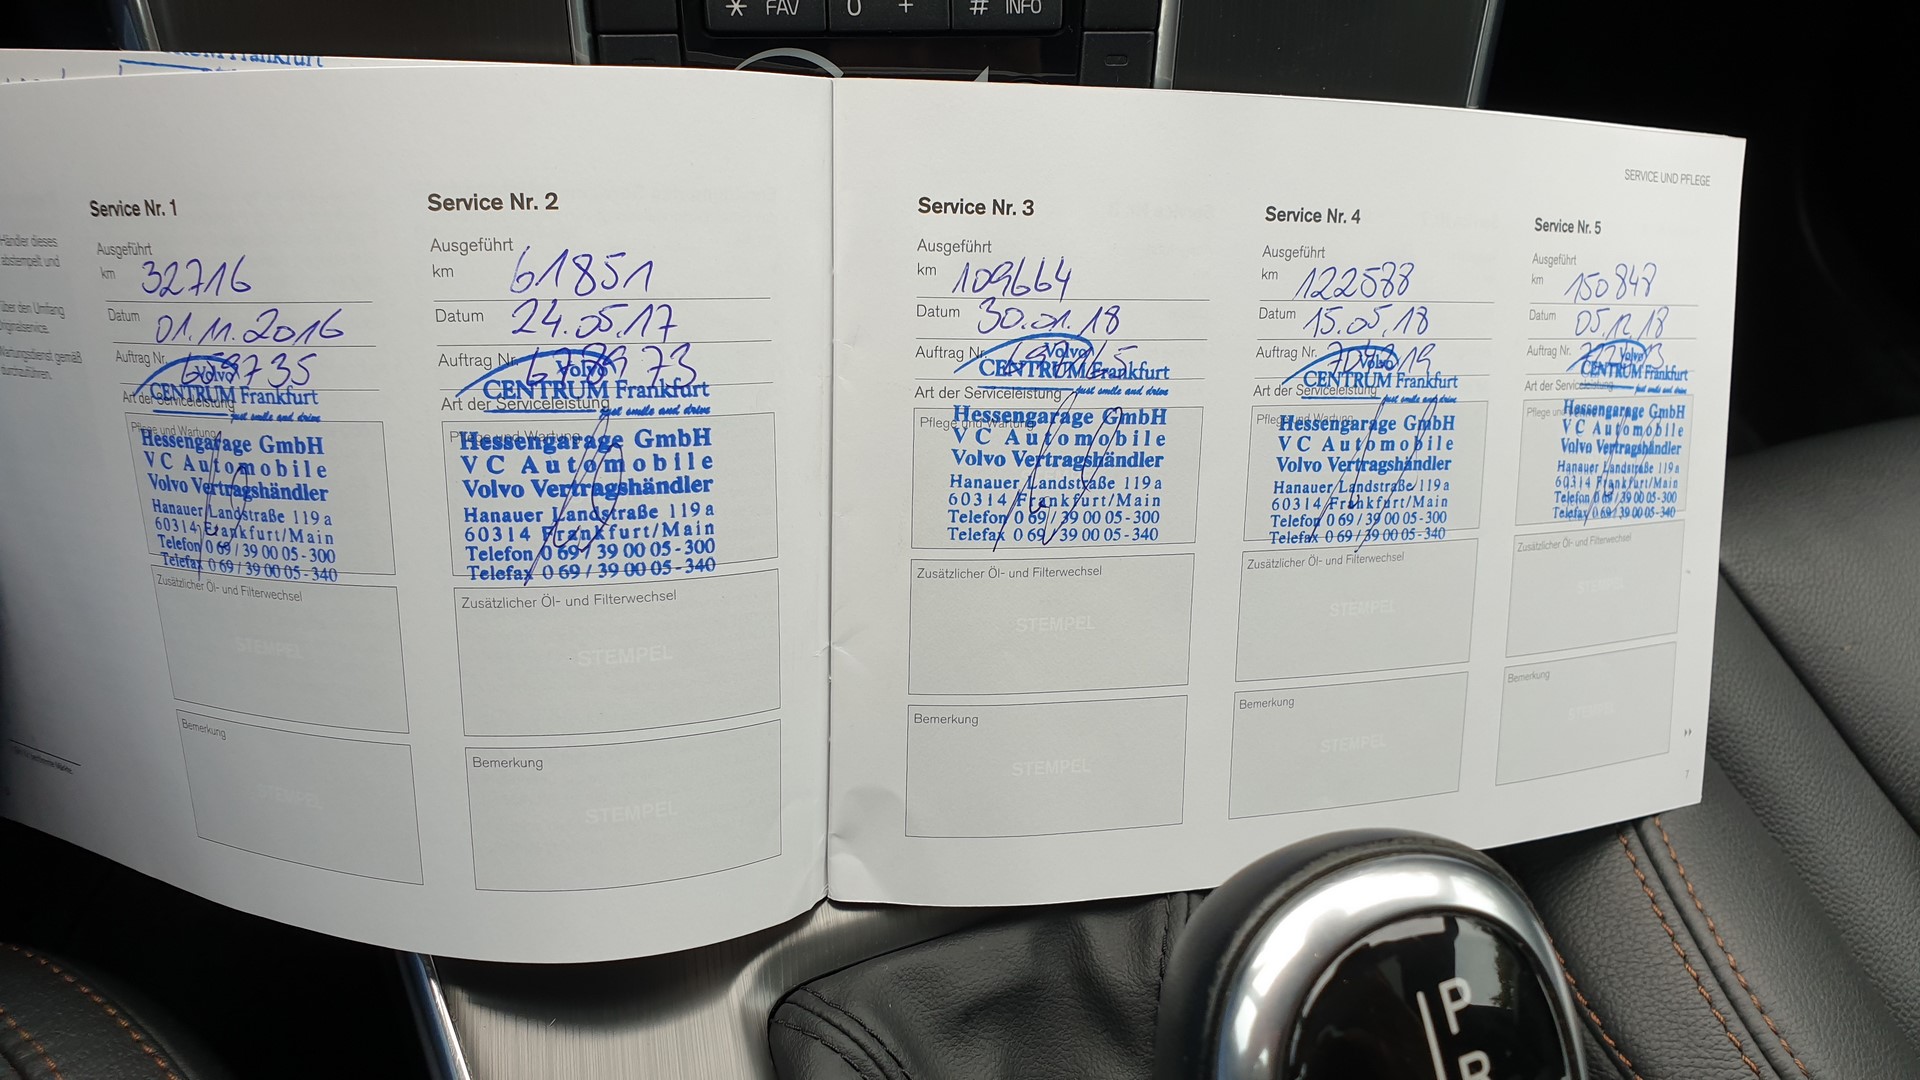 * FAV
0 +
# INFO
SERVICE UND PFLEGE
Händler dieses
abstempelt und
über den Umfang
Originalservice.
Wartungsdienst gemäß
durchzuführen.
Service Nr. 1
Ausgeführt
km 32716
Datum 01.11.2016
Auftrag Nr.
Volvo
CENTRUM Frankfurt
Art der Serviceleistung
just smile and drive
Pflege und Wartung
Hessengarage GmbH
VC Automobile
Volvo Vertragshändler
Hanauer Landstraße 119 a
60314 Frankfurt/Main
Telefon 0 69 / 39 00 05 - 300
Telefax 0 69 / 39 00 05 - 340
Zusätzlicher Öl- und Filterwechsel
STEMPEL
Bemerkung
STEMPEL
Service Nr. 2
Ausgeführt
km 61851
Datum 24.05.17
Auftrag Nr.
Volvo
CENTRUM Frankfurt
Art der Serviceleistung
just smile and drive
Pflege und Wartung
Hessengarage GmbH
VC Automobile
Volvo Vertragshändler
Hanauer Landstraße 119 a
60314 Frankfurt/Main
Telefon 0 69 / 39 00 05 - 300
Telefax 0 69 / 39 00 05 - 340
Zusätzlicher Öl- und Filterwechsel
STEMPEL
Bemerkung
STEMPEL
Service Nr. 3
Ausgeführt
km 109664
Datum 30.01.18
Auftrag Nr.
Volvo
CENTRUM Frankfurt
Art der Serviceleistung
just smile and drive
Pflege und Wartung
Hessengarage GmbH
VC Automobile
Volvo Vertragshändler
Hanauer Landstraße 119 a
60314 Frankfurt/Main
Telefon 0 69 / 39 00 05 - 300
Telefax 0 69 / 39 00 05 - 340
Zusätzlicher Öl- und Filterwechsel
STEMPEL
Bemerkung
STEMPEL
Service Nr. 4
Ausgeführt
km 122588
Datum 15.05.18
Auftrag Nr.
Volvo
CENTRUM Frankfurt
Art der Serviceleistung
just smile and drive
Pflege und Wartung
Hessengarage GmbH
VC Automobile
Volvo Vertragshändler
Hanauer Landstraße 119 a
60314 Frankfurt/Main
Telefon 0 69 / 39 00 05 - 300
Telefax 0 69 / 39 00 05 - 340
Zusätzlicher Öl- und Filterwechsel
STEMPEL
Bemerkung
STEMPEL
Service Nr. 5
Ausgeführt
km 150848
Datum 05.12.18
Auftrag Nr.
Volvo
CENTRUM Frankfurt
Art der Serviceleistung
just smile and drive
Pflege und
Hessengarage GmbH
VC Automobile
Volvo Vertragshändler
Hanauer Landstraße 119 a
60314 Frankfurt/Main
Telefon 0 69 / 39 00 05 - 300
Telefax 0 69 / 39 00 05 - 340
Zusätzlicher Öl- und Filterwechsel
STEMPEL
Bemerkung
STEMPEL
7
P
R